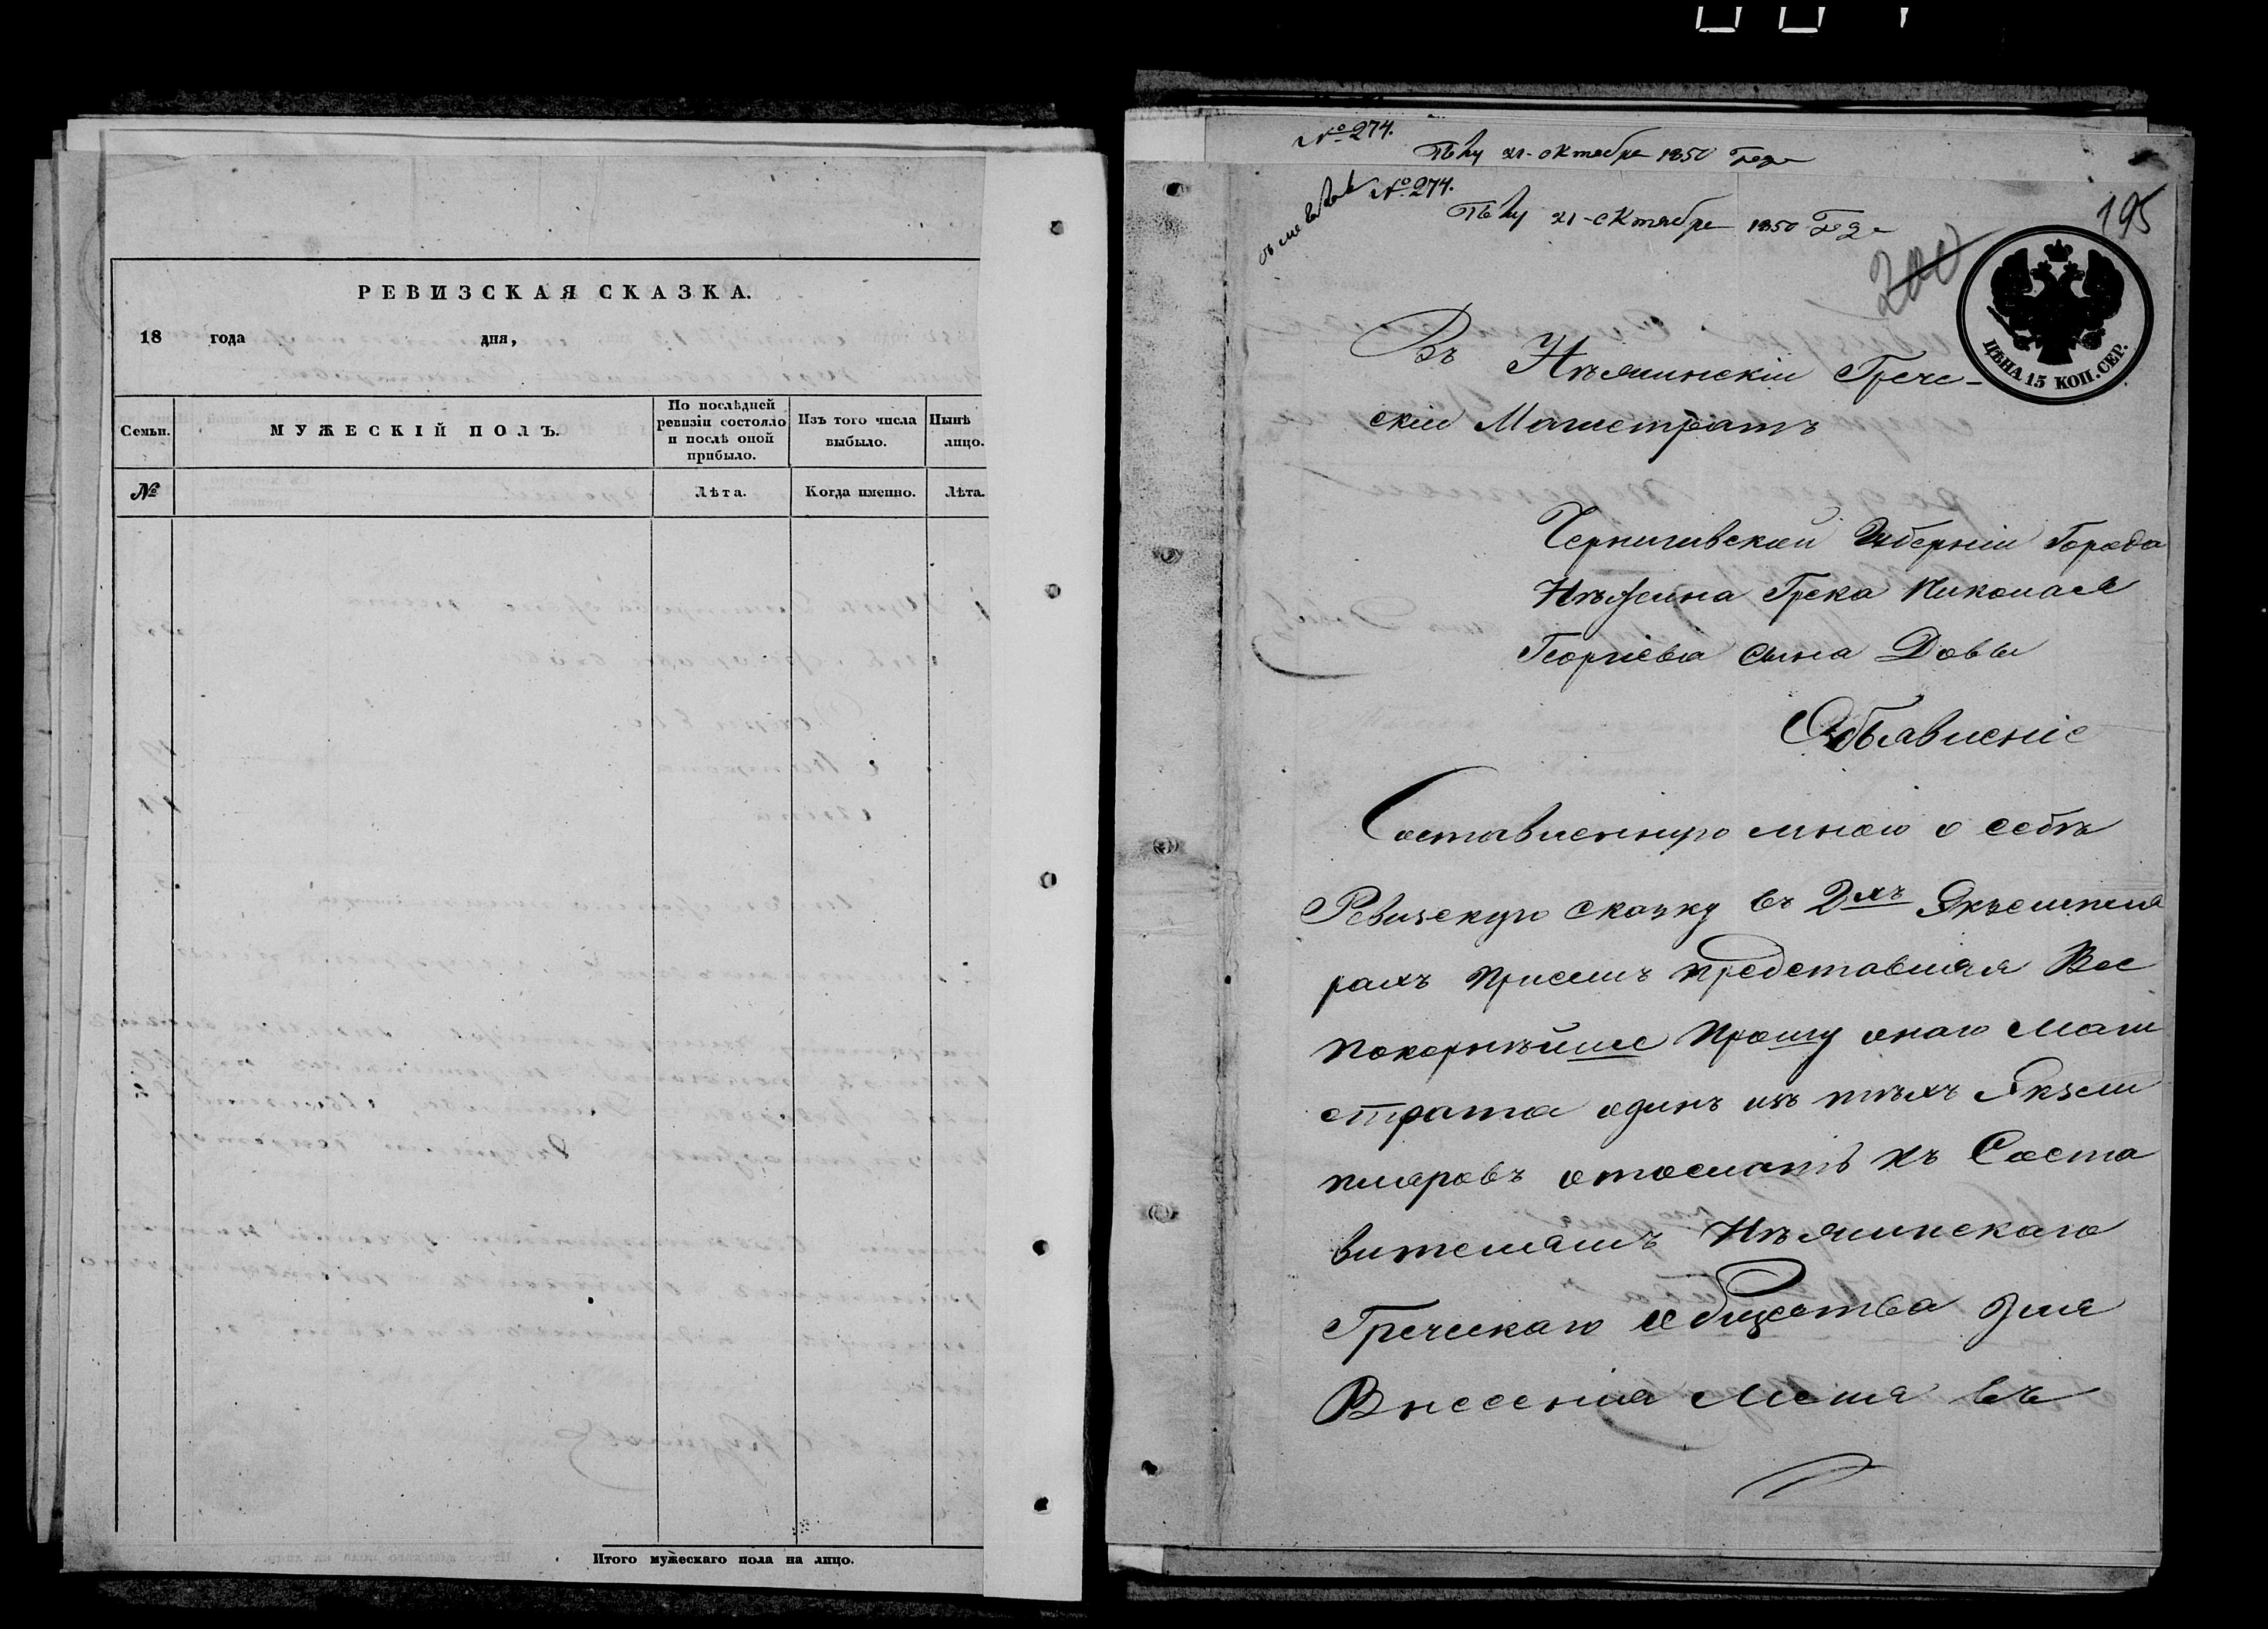 РЕВИЗСКАЯ СКАЗКА.
18 года дня,
Семьи.
МУЖЕСКІЙ ПОЛЪ.
По послѣдней
ревизіи состояло
и послѣ оной
прибыло.
Изъ того числа
выбыло.
Нынѣ
лицо.
№
Лѣта.
Когда именно.
Лѣта.
Итого мужескаго пола на лицо.
№ 274.
21-октября 1850 года
№ 274.
21-октября 1850 года
195
200
ЦѢНА 15 КОП. СЕР.
Въ Нѣжинскій Грече-
скій Магистратъ
Черниговской Губерніи Города
Нѣжина Грека Николая
Георгіева сына Довы
Объявленіе
Составленную мною о себѣ
Ревизскую сказку въ 2хъ Экземпля
рахъ присемъ представляя Все
покорнѣйше прошу онаго Маги
страта одинъ изъ тѣхъ Экзем
пляровъ отослать къ Соста
вителямъ Нѣжинскаго
Греческаго общества для
Внесенія Меня въ